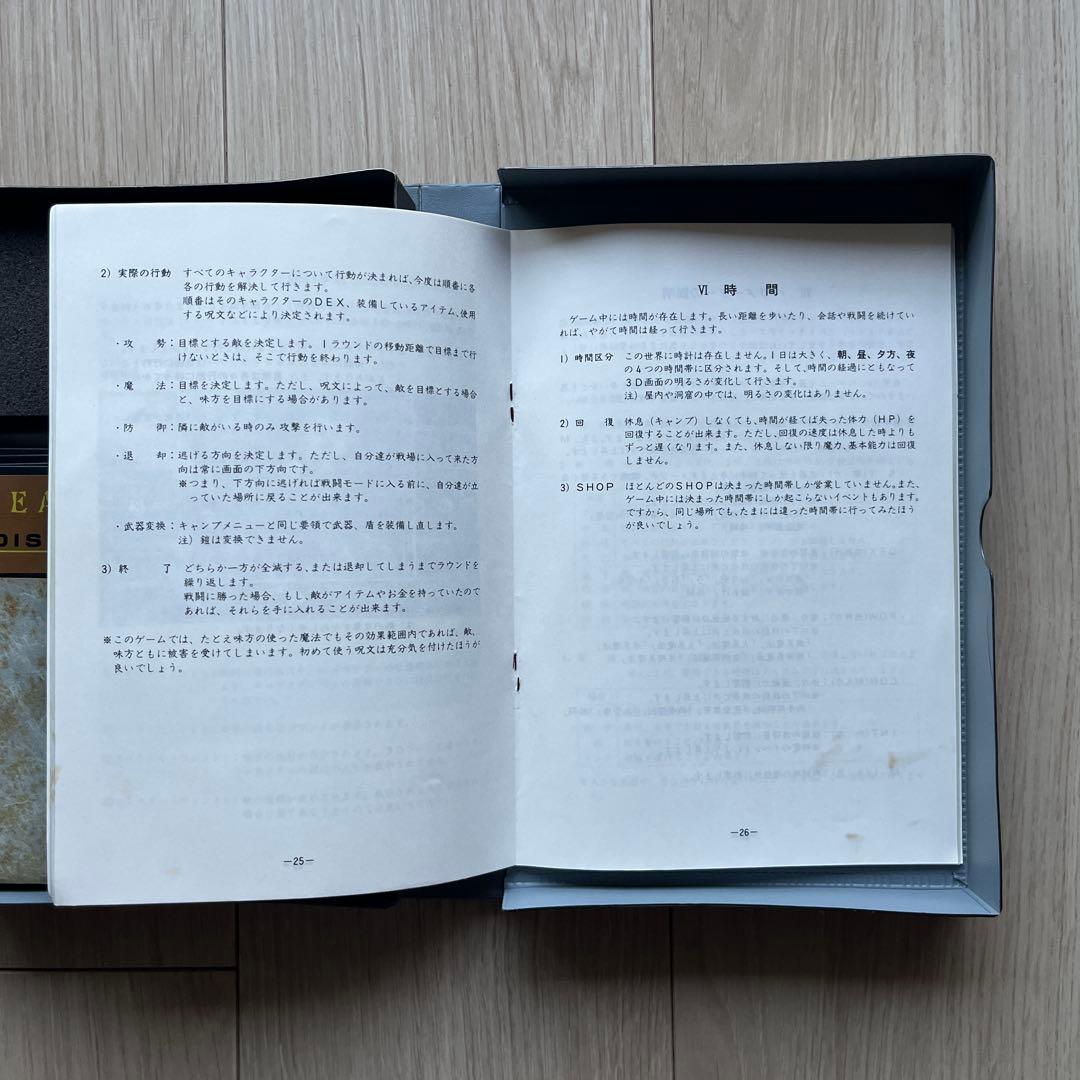 2) 実際の行動 すべてのキャラクターについて行動が決まれば、今度は順番に各
各の行動を解決して行きます。
順番はそのキャラクターのDEX、装備しているアイテム、使用
する呪文などにより決定されます。
・攻 勢：目標とする敵を決定します。1ラウンドの移動距離で目標まで行
けないときは、そこで行動を終わります。
・魔 法：目標を決定します。ただし、呪文によって、敵を目標とする場合
と、味方を目標にする場合があります。
・防 御：隣に敵がいる時のみ 攻撃を行います。
・退 却：逃げる方向を決定します。ただし、自分達が戦場に入って来た方
向は常に画面の下方向です。
※つまり、下方向に逃げれば戦闘モードに入る前に、自分達が立
っていた場所に戻ることが出来ます。
・武器変換：キャンプメニューと同じ要領で武器、盾を装備し直します。
注）鎧は変換できません。
3) 終 了 どちらか一方が全滅する、または退却してしまうまでラウンドを
繰り返します。
戦闘に勝った場合、もし、敵がアイテムやお金を持っていたので
あれば、それらを手に入れることが出来ます。
※このゲームでは、たとえ味方の使った魔法でもその効果範囲内であれば、敵、
味方ともに被害を受けてしまいます。初めて使う呪文は充分気を付けたほうが
良いでしょう。
—25—
Ⅵ 時 間
ゲーム中には時間が存在します。長い距離を歩いたり、会話や戦闘を続けてい
れば、やがて時間は経って行きます。
1) 時間区分 この世界に時計は存在しません。1日は大きく、朝、昼、夕方、夜
の4つの時間帯に区分されます。そして、時間の経過にともなって
3D画面の明るさが変化して行きます。
注）屋内や洞窟の中では、明るさの変化はありません。
2) 回 復 休息（キャンプ）しなくても、時間が経てば失った体力（HP）を
回復することが出来ます。ただし、回復の速度は休息した時よりも
ずっと遅くなります。また、休息しない限り魔力、基本能力は回復
しません。
3) SHOP ほとんどのSHOPは決まった時間帯しか営業していません。また、
ゲーム中には決まった時間帯にしか起こらないイベントもあります。
ですから、同じ場所でも、たまには違った時間帯に行ってみたほう
が良いでしょう。
—26—
EA
DIS